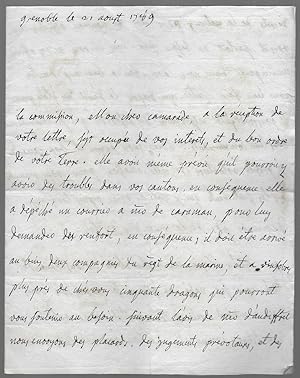 grenoble le 21 aoust 1789
la commission, Mon cher camarade, a la reception de
votre lettre, s'est occupée de vos interets, et du bon ordre
de votre Terre. elle avoit meme prevu qu'il pourroit y
avoir des troubles dans vos cantons, en consequence elle
a dépéché un courrier a mr de caraman, pour luy
demander des renfort, en consequence; il doit être arrivé
au buis, deux compagnies du regt de la marine, et a
plus près de chez vous cinquante dragons qui pourront
vous soutenir au besoin. suivant l'avis de mr
nous envoyons des placards, des jugements prevotaux, et des